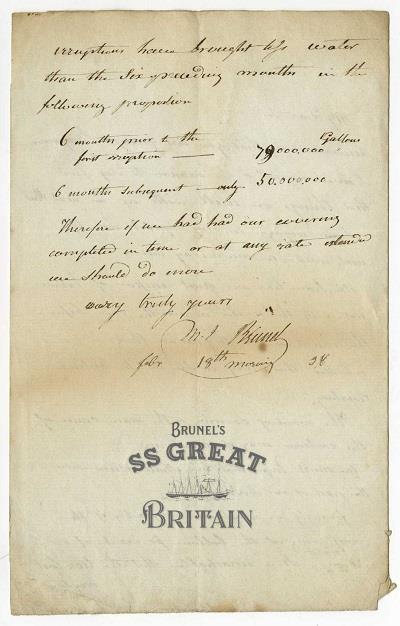 irruptions have brought less water
than the six preceding months in the
following proportion
6 months prior to the Gallons
first irruption — 79.000.000 "
6 months subsequent — only 50.000.000
Therefore if we had had our covering
completed in time or at any rate extended
we should do more
very truly yours
M. I Brunel
feb 18th morning 38
BRUNEL'S
SS GREAT
BRITAIN